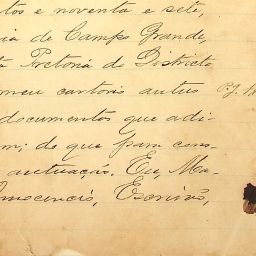 tos e noventa e sete,
ia de Campo Grande,
Pretoria do Districto
meu cartorio autuo
documentos que adi-
m; de que para cons-
autuação. Eu, Ma-
Innocencio, Escrivão,